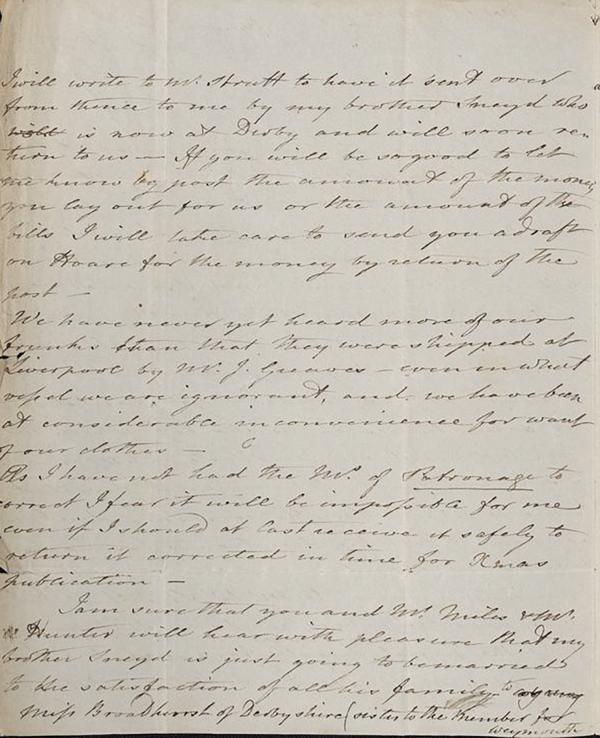 I will write to Mr. Strutt to have it sent over
from thence to me by my brother Sneyd who
is now at Derby and will soon re-
turn to us — If you will be so good to let
me know by post the amount of the money
you lay out for us or the amount of the
bills I will take care to send you a draft
on Hoare for the money by return of the
post —
We have never yet heard more of our
trunks than that they were shipped at
Liverpool by Mr. J. Greaves — even in what
vessel we are ignorant, and we have been
at considerable inconvenience for want
of our clothes —
As I have not had the Ms. of Patronage to
correct I fear it will be impossible for me
even if I should at last receive it safely to
return it corrected in time for Xmas
publication —
I am sure that you and Mr. Miles & Mr.
Hunter will hear with pleasure that my
brother Sneyd is just going to be married
to the satisfaction of all his family to
Miss Broadhurst of Derbyshire (sister to the Member for
Weymouth